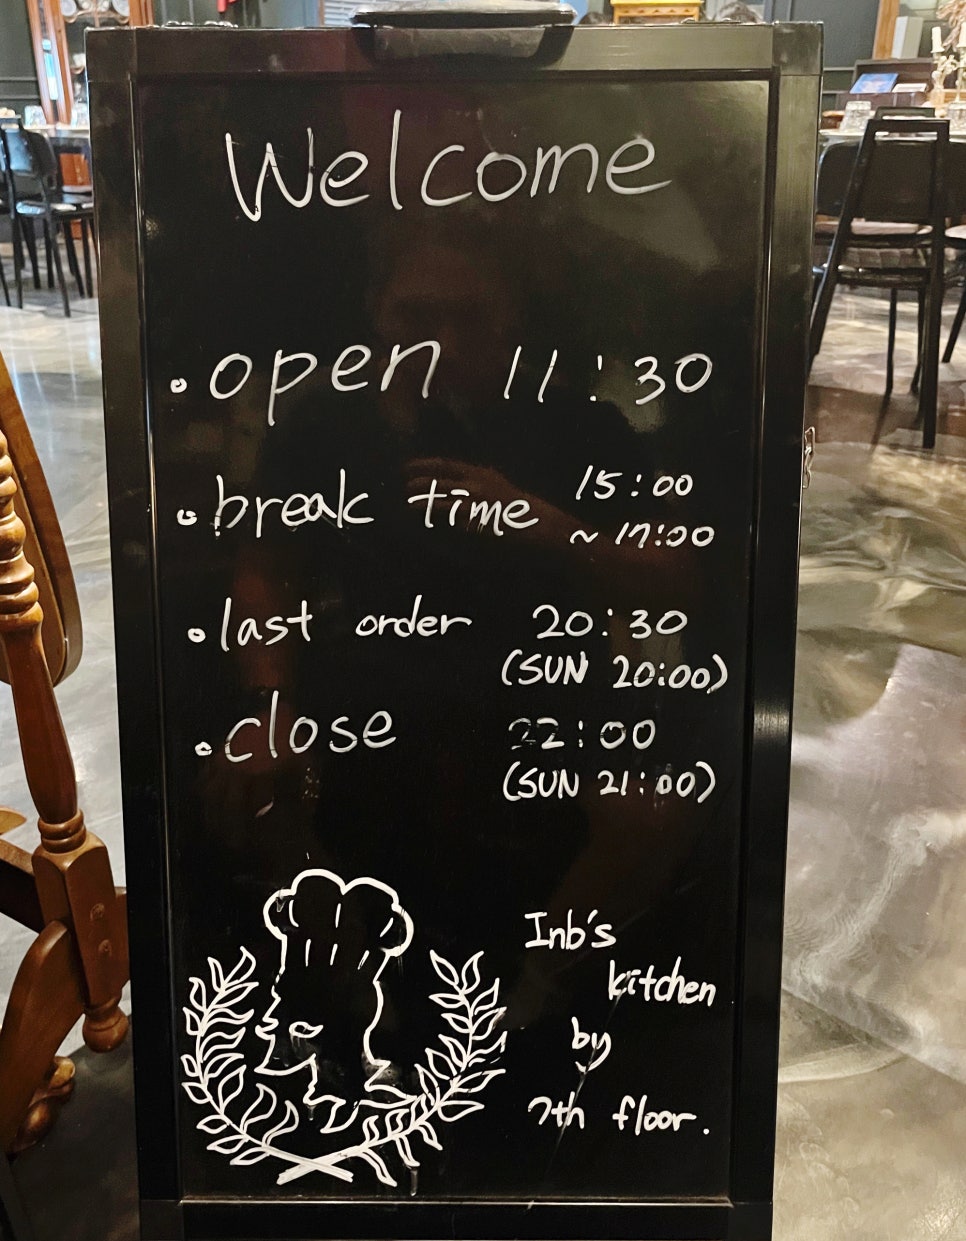 Welcome
open 11:30
break time 15:00
~ 17:00
last order 20:30
(SUN 20:00)
close 22:00
(SUN 21:00)
Inb's
kitchen
by
7th floor.